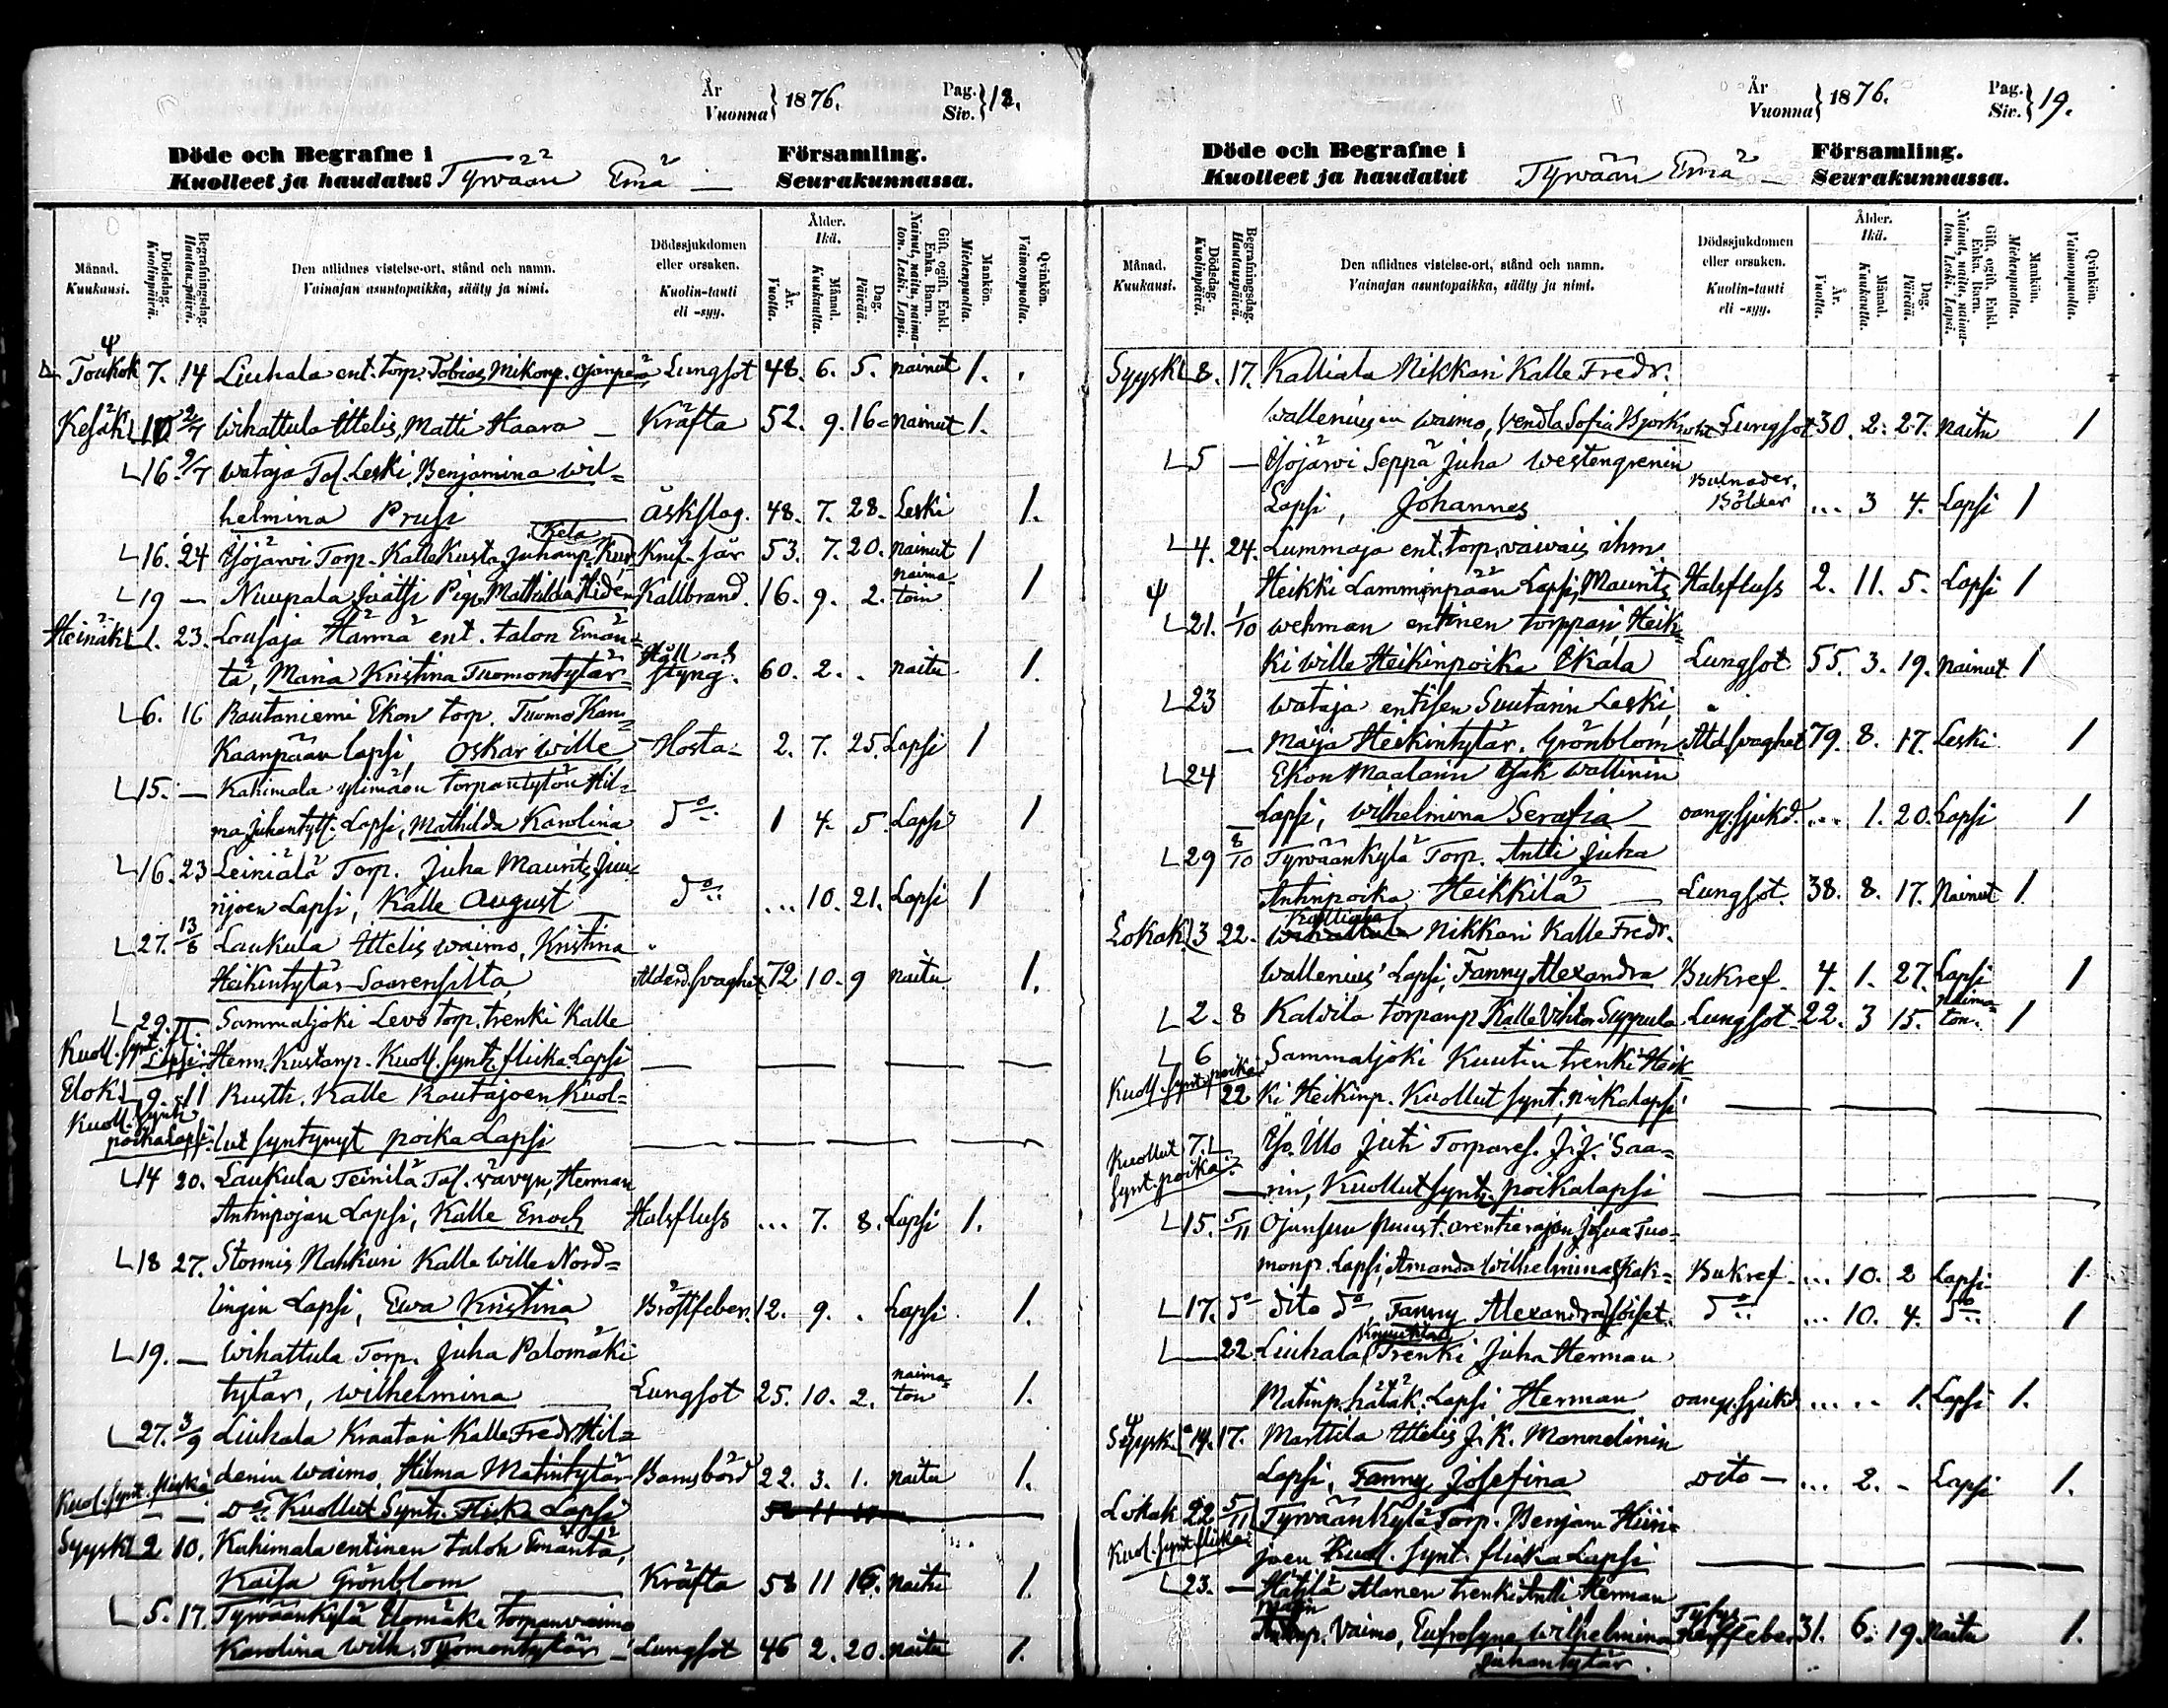 År
Vuonna } 1876.
Pag.
Siv. } 18.
Döde och Begrafne i
Kuolleet ja haudatut
Tyrwään Emä —
Församling.
Seurakunnassa.
Månad.
Kuukausi.
Dödsdag.
Kuolinpäivä.
Begrafningsdag.
Hautauspäivä.
Den aflidnes vistelse-ort, stånd och namn.
Vainajan asuntopaikka, sääty ja nimi.
Dödssjukdomen
eller orsaken.
Kuolin-tauti
eli -syy.
Ålder.
Ikä.
År.
Vuotta.
Månad.
Kuukautta.
Dag.
Päivää.
Gift, ogift, Enkl.
Enka, Barn.
Nainut, naitu, naima-
ton. Leski. Lapsi.
Mankön.
Miehenpuolta.
Qvinkön.
Vaimonpuolta.
Toukok 7. 14 Liuhala ent. torp. Tobias Mikonp. Ojanperä Lungsot 48. 6. 5. nainut 1.
Kesäk 2/7 Wihattula Ittelis, Matti Haara — Kräfta 52. 9. 16 nainut 1.
16. 9/7 Wataja Tal. Leski, Benjamina Wil=
helmina Prusi Åskslag. 48. 7. 28. Leski 1.
Kela
16. 24 Torp. Kalle Kusta Juhanp. Knif-sår 53. 7. 20. nainut 1
19 — Nuupala Jaatsi Pig. Mathilda Hiden Kallbrand. 16. 9. 2. naima
toin 1
Heinäk 1. 23. Lousaja Hanna ent. talon Emän=
tä, Maria Kristina Tuomontytär Håll och
styng. 60. 2. . naitu 1.
6. 16 Rautaniemi Ekon torp. Tuomo Kan=
Kaanpään lapsi, Oskar Wille Hosta 2. 7. 25. Lapsi 1
15. — Kahimala torpantytön Hil=
ma Juhantytt. Lapsi, Mathilda Karolina Do 1 4. 5. Lapsi 1
16. 23 Leiniälä Torp. Juha Maurits
njoen Lapsi, Kalle August Do ... 10. 21. Lapsi 1
27. 13/8 Laukula Ittelis waimo, Kristina
Heikintytär Saarensilta Ålderd. svaghet 72 10. 9 naitu 1.
29. Sammaljoki Levo torp. trenki Kalle
Kuoll. synt.
Lapsi. Herm. Kustanp. Kuoll. synt. flicka Lapsi — — — — —
Elok 9. 11 Rusth. Kalle Rautajoen Kuol=
Kuoll. synt.
poikalapsi. lut syntynyt poika Lapsi — — — — —
14 20. Laukula Teinilä Tal. wävyn, Herman
Antinpojan Lapsi, Kalle Enoch Halsfluss ... 7. 8. Lapsi 1.
18 27. Stormis Nahkuri Kalle Wille Nord=
lingin Lapsi, Ewa Kristina Bröstfeber. 12. 9. . Lapsi 1.
19. — Wihattula Torp. Juha Palomäki
tytär, Wilhelmina Lungsot 25. 10. 2. naima=
ton 1.
27. 3/9 Liuhala Kraatari Kalle Fredr. Hil=
denin waimo, Hilma Matintytär Barnsbörd 22. 3. 1. naitu 1.
Kuol. synt. flicka
— — Do Kuollut Synt. Flicka Lapsi
Syysk 2 10. Kahimala entinen talon Emäntä,
Kaisa Grönblom Kräfta 58 11 16. naitu 1.
5. 17. Tyrwäänkylä torpanvaimo
Karolina Wilh. Tuomontytär Lungsot 46 2. 20. naitu 1.
År
Vuonna } 1876.
Pag.
Siv. } 19.
Döde och Begrafne i
Kuolleet ja haudatut
Tyrwään Emä —
Församling.
Seurakunnassa.
Månad.
Kuukausi.
Dödsdag.
Kuolinpäivä.
Begrafningsdag.
Hautauspäivä.
Den aflidnes vistelse-ort, stånd och namn.
Vainajan asuntopaikka, sääty ja nimi.
Dödssjukdomen
eller orsaken.
Kuolin-tauti
eli -syy.
Ålder.
Ikä.
År.
Vuotta.
Månad.
Kuukautta.
Dag.
Päivää.
Gift, ogift, Enkl.
Enka, Barn.
Nainut, naitu, naima-
ton. Leski. Lapsi.
Mankön.
Miehenpuolta.
Qvinkön.
Vaimonpuolta.
Syysk 8. 17. Kalliala Nikkari Kalle Fredr.
Walleniuxen Waimo, Vendla Sofia Lungsot 30. 2. 27. naitu 1
5 — Seppä Juha Westengrenin
Lapsi, Johannes Bulnader,
Bölder ... 3 4. Lapsi 1
4. 24. Lummaja ent. torp. vaivais ihm.
Heikki Lamminpään Lapsi, Maurits Halsfluss 2. 11. 5. Lapsi 1
21. 1/10 Wehman entinen torppari Heik=
ki Wille Heikinpoika Lungsot 55. 3. 19. nainut 1
23 Wataja entisen Suutarin Leski,
— Maija Heikintytär Grönblom Åld. svaghet 79. 8. 17. Leski 1
24 Ekon Maalarin Isak Wallinin
— Lapsi, Wilhelmina Serafia oang. sjukd. ... 1. 20. Lapsi 1
29 8/10 Tyrwäänkylä Torp. Antti Juha
Antinpoika Heikkilä — Lungsot. 38. 8. 17. Nainut 1.
Lokak. 3 22. Kalliala Nikkari Kalle Fredr.
Wallenius' Lapsi, Fanny Alexandra Bukref 4. 1. 27. Lapsi 1
2. 8 Kalvila torpanp. Kalle Vihtor Suppula Lungsot 22. 3 15. naima=
ton. 1
6 Sammaljoki Kuutin trenki Heik
Kuoll. synt. poika
22 ki Heikinp. Kuollut synt. poikalapsi — — — —
Kuollut 7.
synt. poika. Juti Torparef. J. J. Saa=
rin, Kuollut synt. poikalapsi — — — —
15. 5/11 Ojansuu arentierajan Josua Tuo=
monp. Lapsi, Amanda Wilhelmina Kak= Bukref ... 10. 2 Lapsi 1
17. Do dito Do Fanny Alexandra soiset. Do ... 10. 4. Do 1
22. Liuhala Trenki Juha Herman
Matinp. hätäk. Lapsi Herman oang. sjukd. ... .. 1. Lapsi 1.
Syysk. 14. 17. Marttila Ittelis J. K. Mannelinin
Lapsi, Fanny Josefina dito — ... 2. - Lapsi 1.
Lokak 22 5/11 Tyrwäänkylä Torp. Benjam Hiin=
Kuol. synt. flicka
joen Kuoll. synt. flicka Lapsi — — — —
23. — Hätilä Alanen trenki Antti Herman
Matin
p. Vaimo, Eufrosyne Wilhelmina Tyfus
feber 31. 6. 19. naitu 1.
Juhantytär